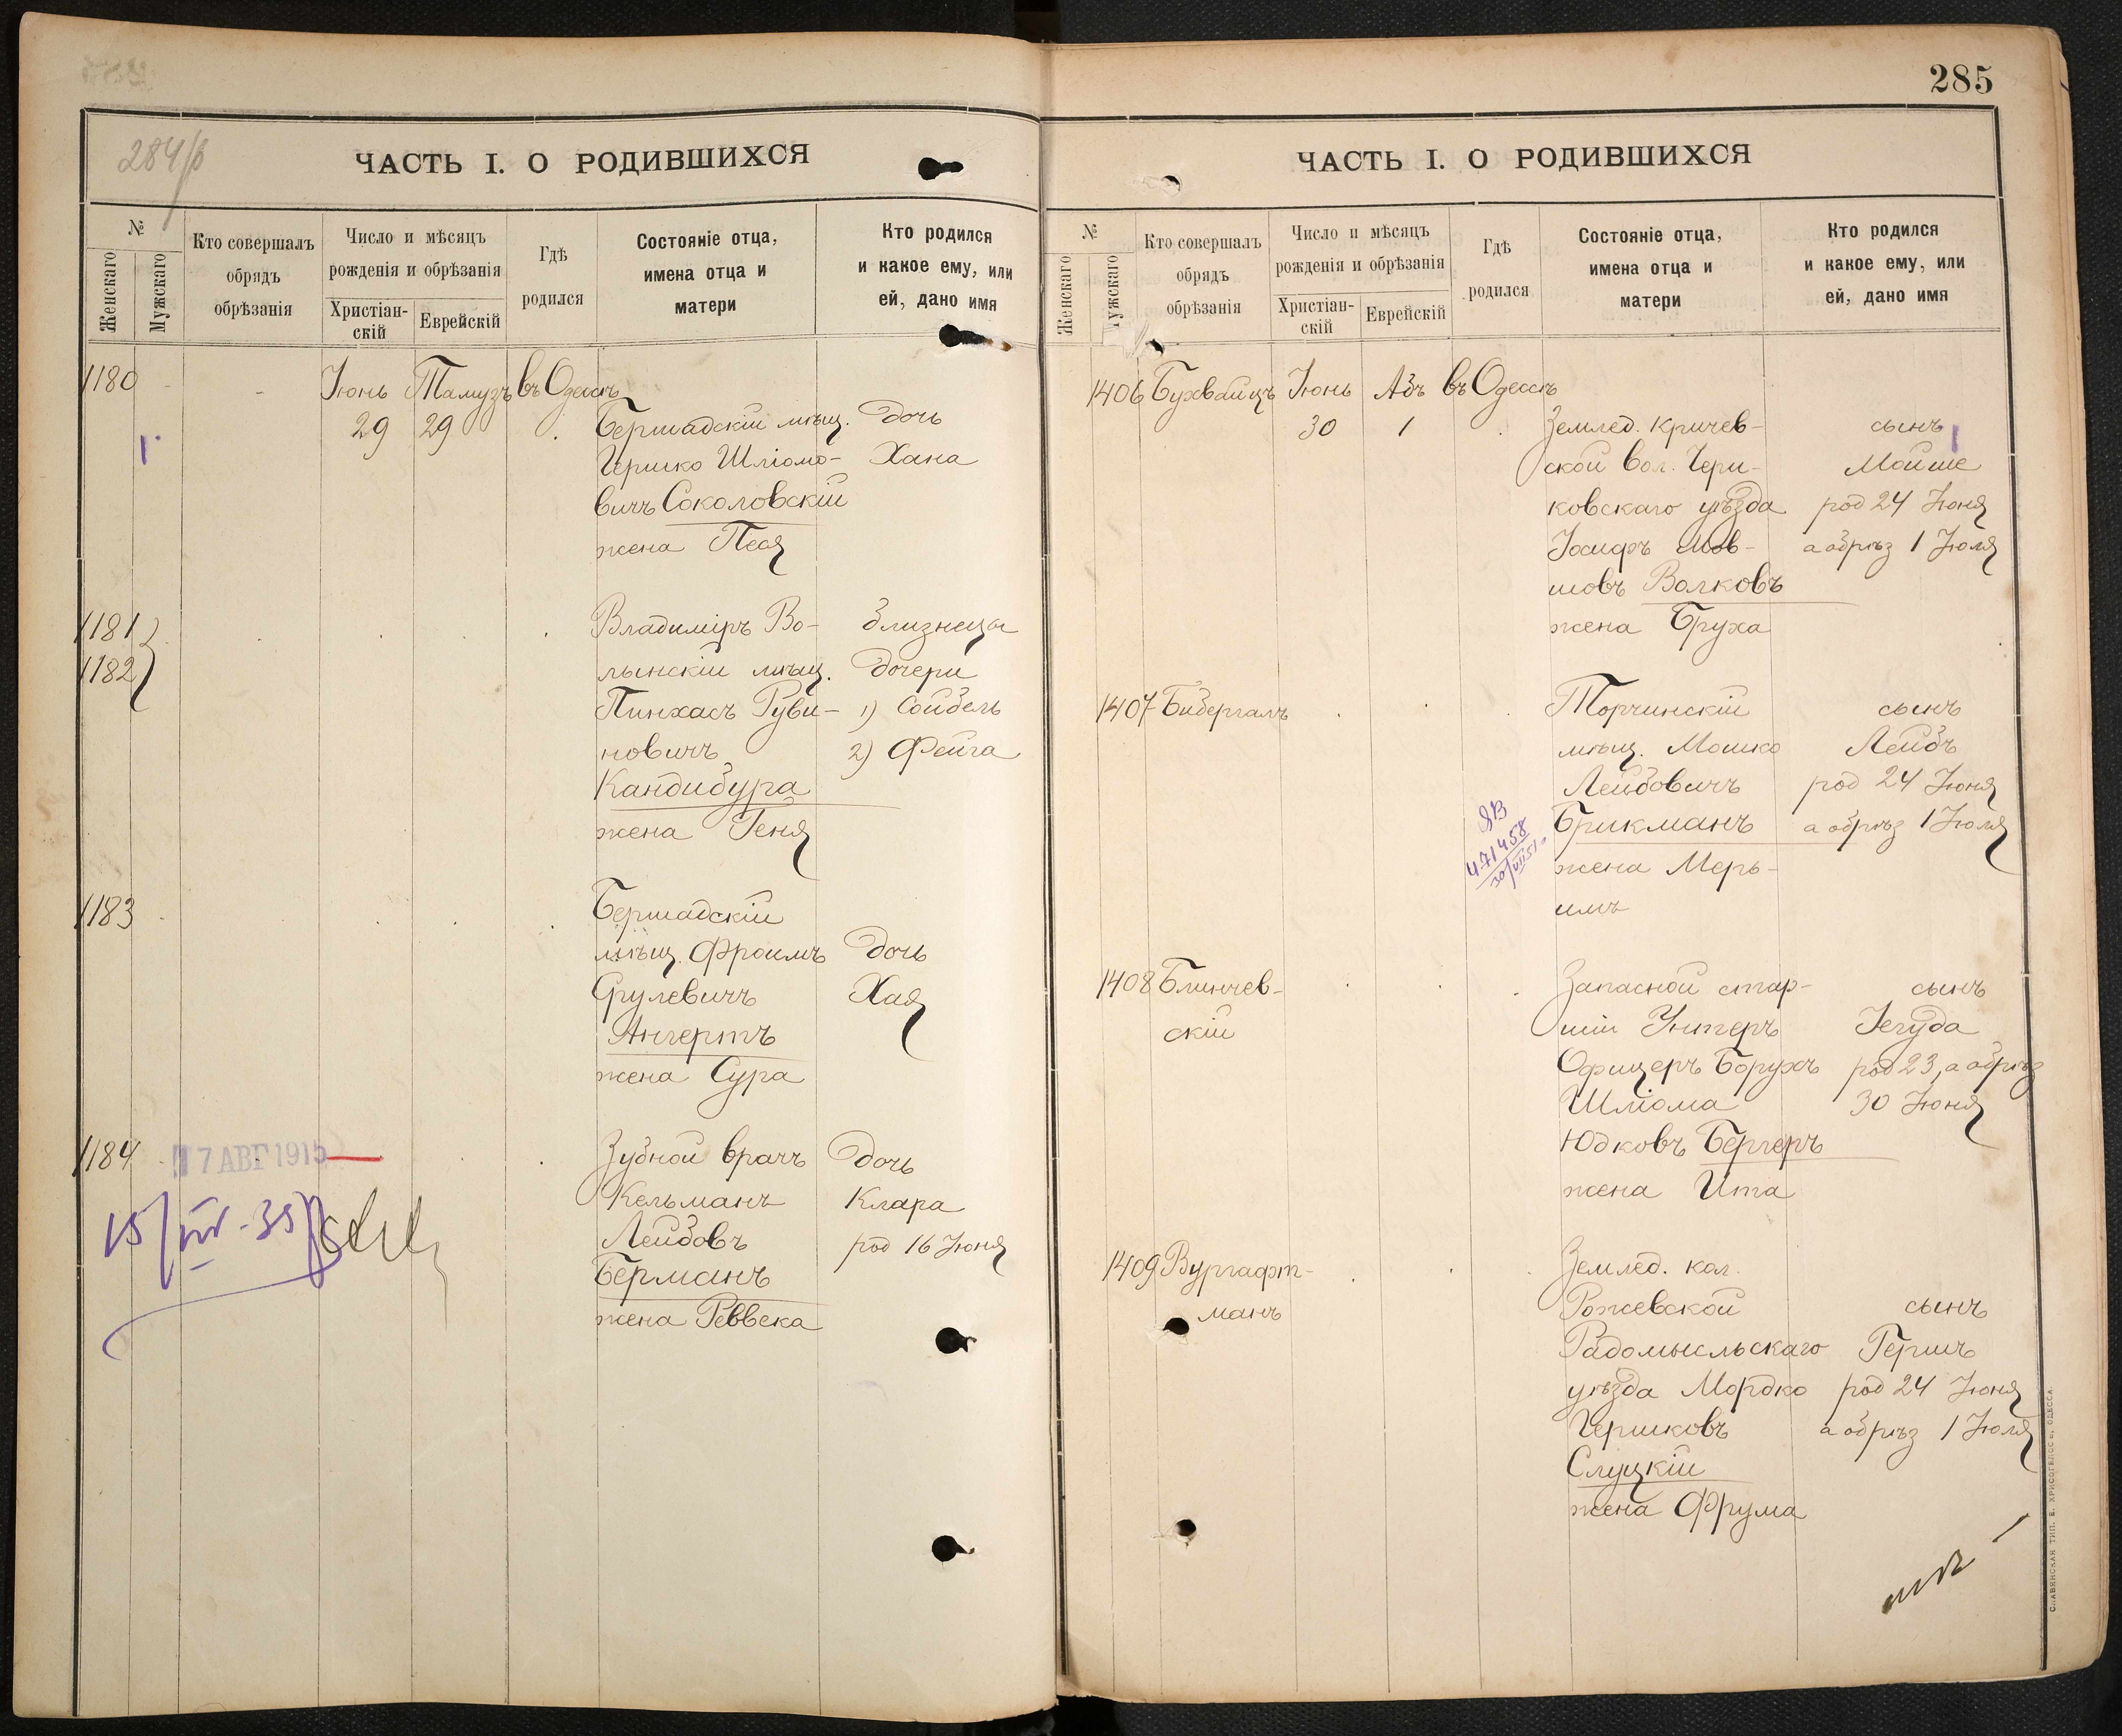 284/в
ЧАСТЬ I. О РОДИВШИХСЯ
№
Женскаго
Мужскаго
Кто совершалъ
обрядъ
обрѣзанія
Число и мѣсяцъ
рожденія и обрѣзанія
Христіан-
скій
Еврейскій
Гдѣ
родился
Состояніе отца,
имена отца и
матери
Кто родился
и какое ему, или
ей, дано имя
1180 - - Іюнь Тамузъ въ Одессѣ
29 29 Бершадскій мѣщ. дочь
Гершко Шліомо- Хана
вичъ Соколовскій
жена Песя
1181 Владиміръ Во- близнецы
1182 лынскій мѣщ. дочери
Пинхасъ Руви- 1) Сойбель
новичъ 2) Фейга
Кандибура
жена Геня
1183 Бершадскій
мѣщ. Фроимъ дочь
Срулевичъ Хая
Ангертъ
жена Сура
1184 17 АВГ 1915 Зубной врачъ дочь
Кельманъ Клара
Лейбовъ род 16 Іюня
Берманъ
жена Реввека
285
ЧАСТЬ I. О РОДИВШИХСЯ
№
Женскаго
Мужскаго
Кто совершалъ
обрядъ
обрѣзанія
Число и мѣсяцъ
рожденія и обрѣзанія
Христіан-
скій
Еврейскій
Гдѣ
родился
Состояніе отца,
имена отца и
матери
Кто родился
и какое ему, или
ей, дано имя
1406 Бухвайцъ Іюнь Абъ въ Одессѣ
30 1 Землед. Кричев- сынъ
ской вол. Чери- Мойше
ковскаго уѣзда род 24 Іюня
Іосифъ Мов- а обрѣз 1 Іюля
шовъ Волковъ
жена Бруха
1407 Бибергалъ Торчинскій сынъ
мѣщ. Мошко Лейбъ
Лейбовичъ род 24 Іюня
ЯВ
471458
30/VII 51 г.
Брикманъ а обрѣз 1 Іюля
жена Мерь-
имъ
1408 Блинчев- Запасной стар- сынъ
скій шій Унтеръ Іегуда
Офицеръ Борухъ род 23, а обрѣз
Шліома 30 Іюня
Юдковъ Бергеръ
жена Ита
1409 Вургафт- Землед. кол.
манъ Рожевской сынъ
Радомысльскаго Гершъ
уѣзда Мордко род 24 Іюня
Гершковъ а обрѣз 1 Іюля
Слуцкій
жена Фрума
СЛАВЕНСКАЯ ТИП. Е. ХРИСОГЕЛОСЪ, ОДЕССА.